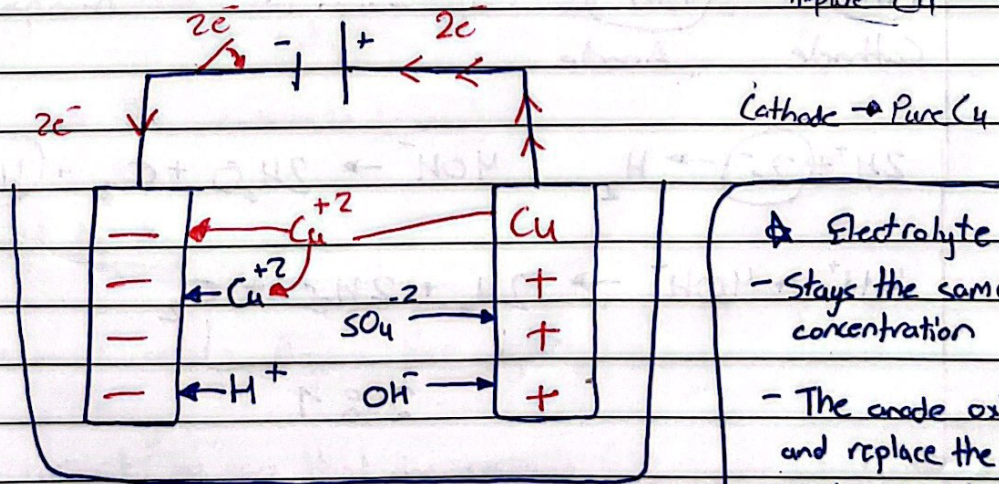 2e⁻
- +
2e⁻
2e⁻
Cathode → Pure Cu
Cu⁺²
Cu
Cu⁺²
SO₄⁻²
H⁺
OH⁻
−
−
−
−
+
+
+
☆ Electrolyte
- Stays the sam
concentration
- The anode ox
and replace the